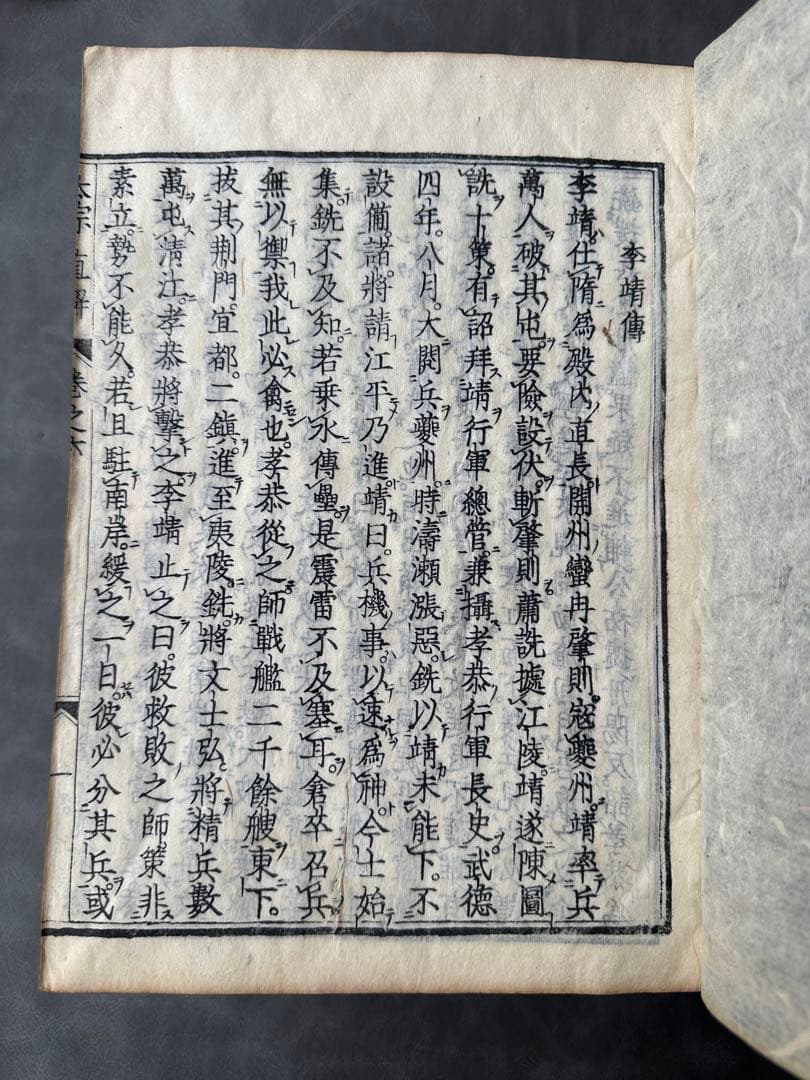 李靖傳
李靖仕隋爲殿內直長開州蠻冉肇則寇夔州靖率兵
萬人破其屯要險設伏斬肇則蕭詵據江陵靖遂陳圖
詵十策有詔拜靖行軍總管兼攝孝恭行軍長史武德
四年八月大閱兵夔州時濤瀨漲惡銑以靖未能下不
設備諸將請江平乃進靖曰兵機事以速爲神今士始
集銑不及知若乗水傳壘是震雷不及塞耳倉卒召兵
無以禦我此必禽也孝恭從之師戰艦二千餘艘東下
拔其荆門宜都二鎮進至夷陵銑將文士弘將精兵數
萬屯清江孝恭將擊之李靖止之曰彼救敗之師策非
素立勢不能久若且駐南岸緩之一日彼必分其兵或
太宗直解 卷之六 一